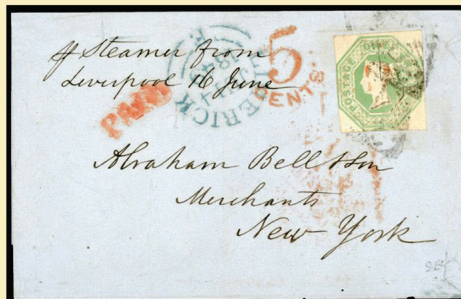 pr Steamer from
Liverpool 16 June
PAID
5
CENTS
POSTAGE
Abraham Bell & Son
Merchants
New York